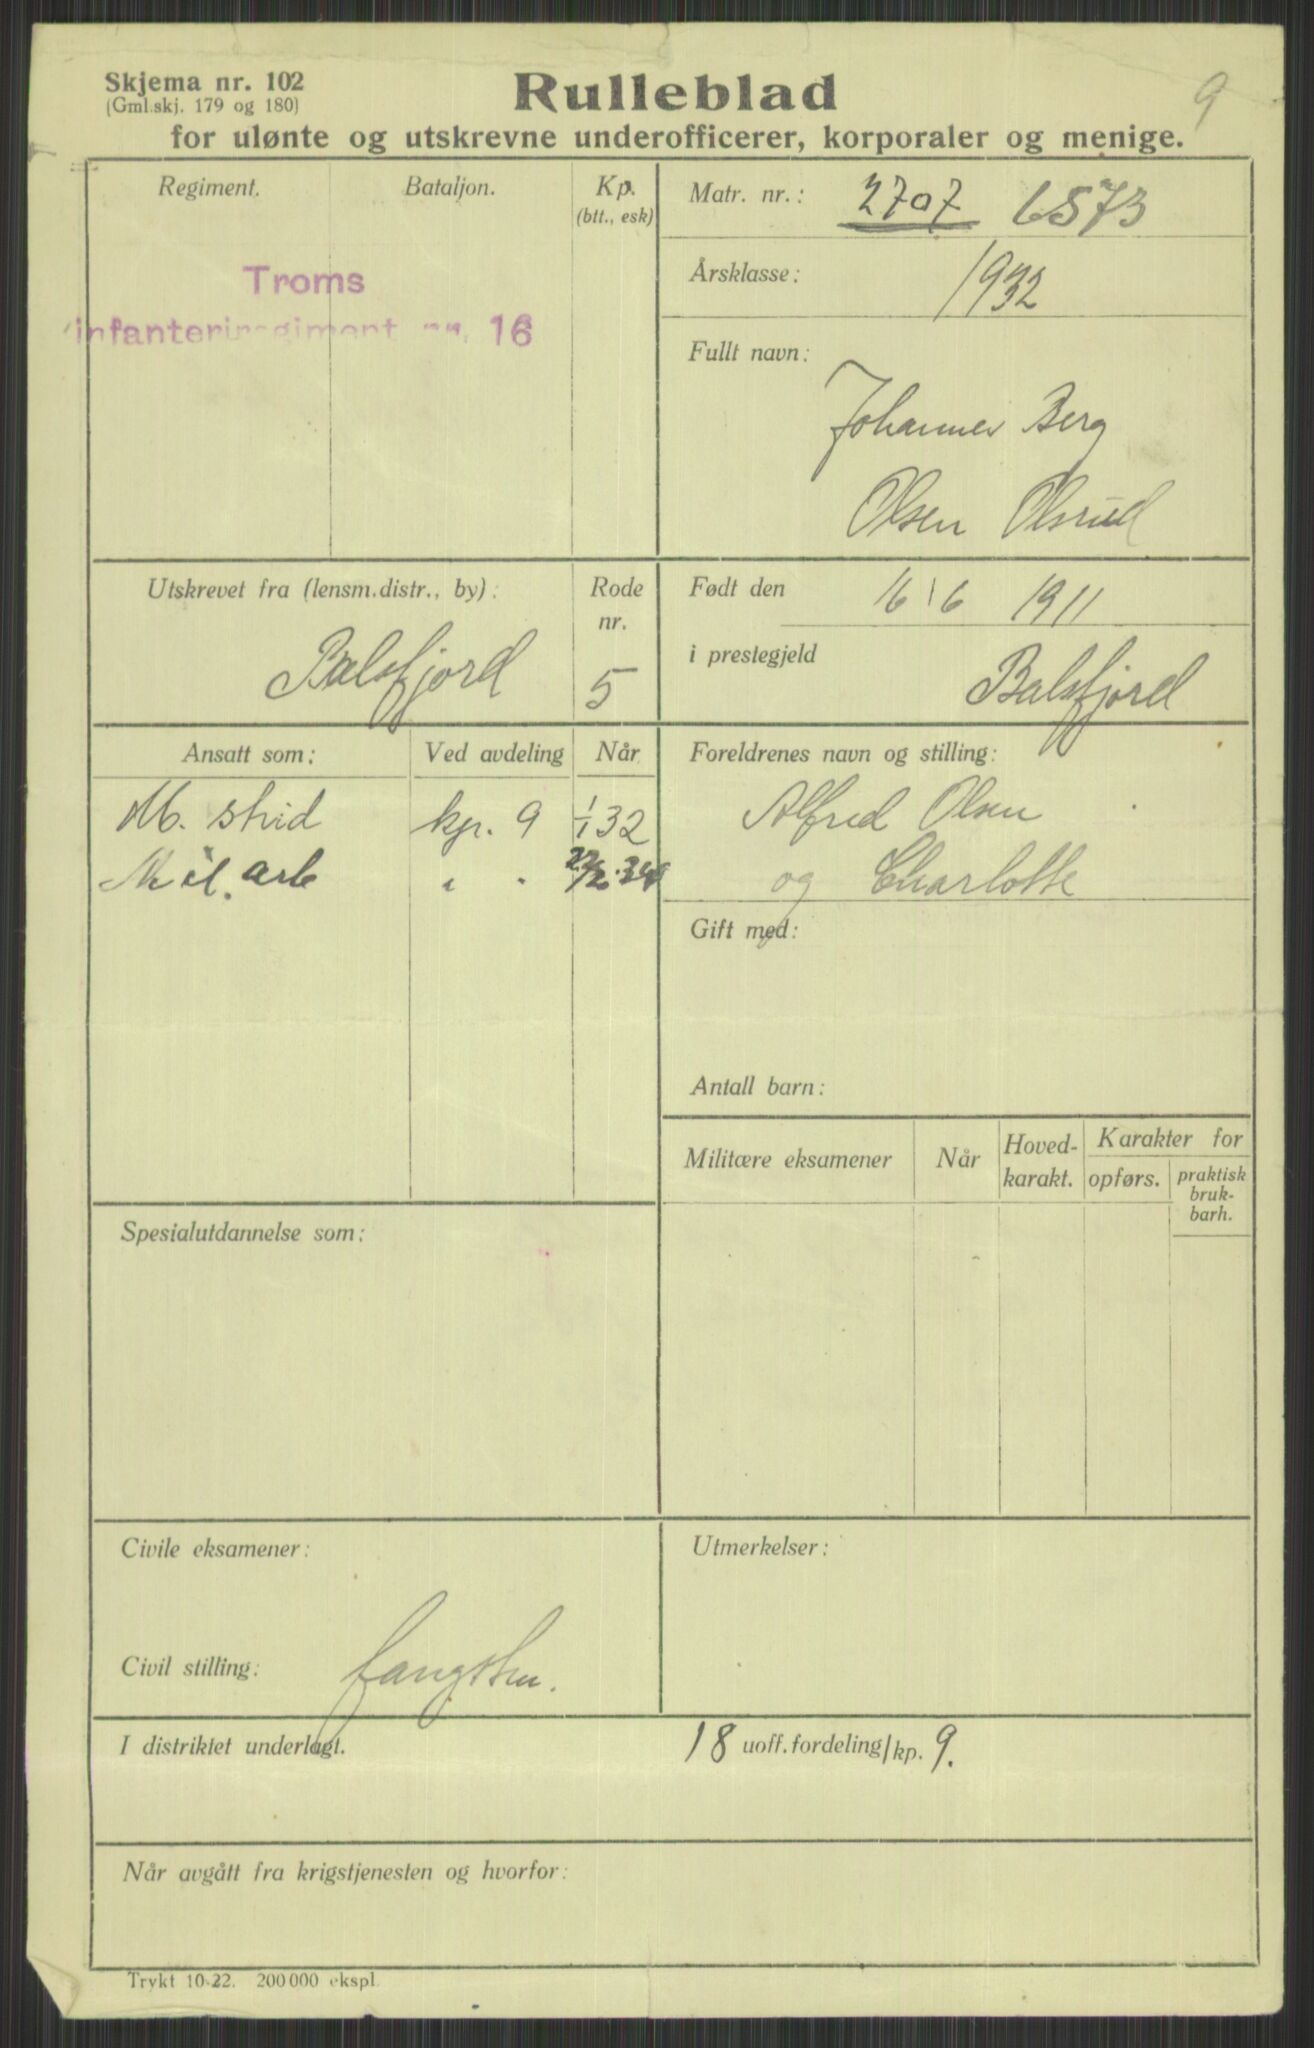 9
Skjema nr. 102
(Gml.skj. 179 og 180)
Rulleblad
for ulønte og utskrevne underofficerer, korporaler og menige.
Regiment.
Bataljon.
Kp.
(btt., esk)
Troms
infanteriregiment nr. 16
Matr. nr.: 2707 6573
Årsklasse: 1932
Fullt navn:
Johannes Berg
Olsen Olsrud
Utskrevet fra (lensm.distr., by):
Balsfjord
Rode
nr.
5
Født den 16/6 1911
i prestegjeld Balsfjord
Ansatt som: Ved avdeling Når
M. strid kp. 9 1/1 32
Mil. arb " "
Foreldrenes navn og stilling:
Alfred Olsen
og Charlotte
Gift med:
Antall barn:
Militære eksamener
Når
Hoved-
karakt.
Karakter for
opførs.
praktisk
bruk-
barh.
Spesialutdannelse som:
Civile eksamener:
Civil stilling:
Utmerkelser:
I distriktet underlagt. 18 uoff.fordeling/kp. 9.
Når avgått fra krigstjenesten og hvorfor:
Trykt 10-22. 200 000 ekspl.